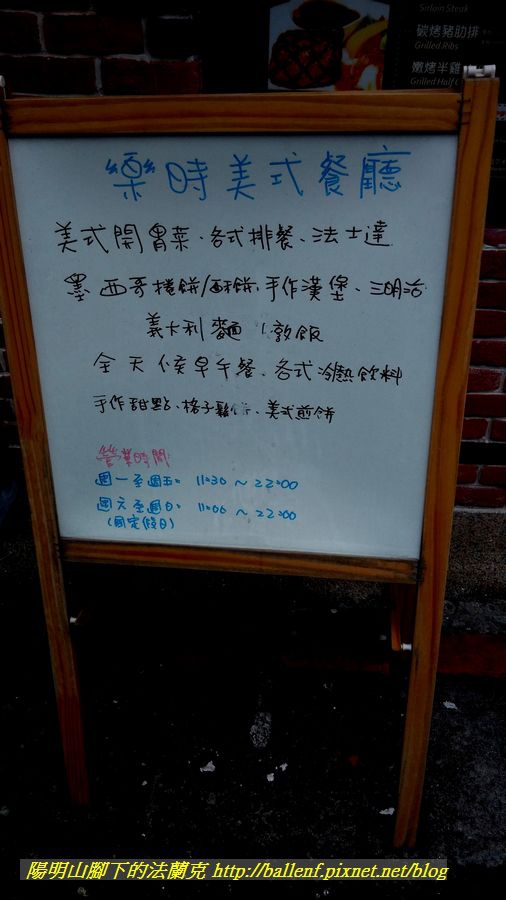 Sirloin Steak
碳烤豬肋排
Grilled Ribs
嫩烤半雞
Grilled Half C
樂時美式餐廳
美式開胃菜、各式排餐、法士達
墨西哥捲餅/酥餅、手作漢堡、三明治
義大利麵、燉飯
全天候早午餐、各式冷熱飲料
手作甜點、格子鬆餅、美式煎餅
營業時間:
週一至週五: 11:30 ~ 22:00
週六至週日: 11:00 ~ 22:00
(國定假日)
陽明山腳下的法蘭克 http://ballenf.pixnet.net/blog